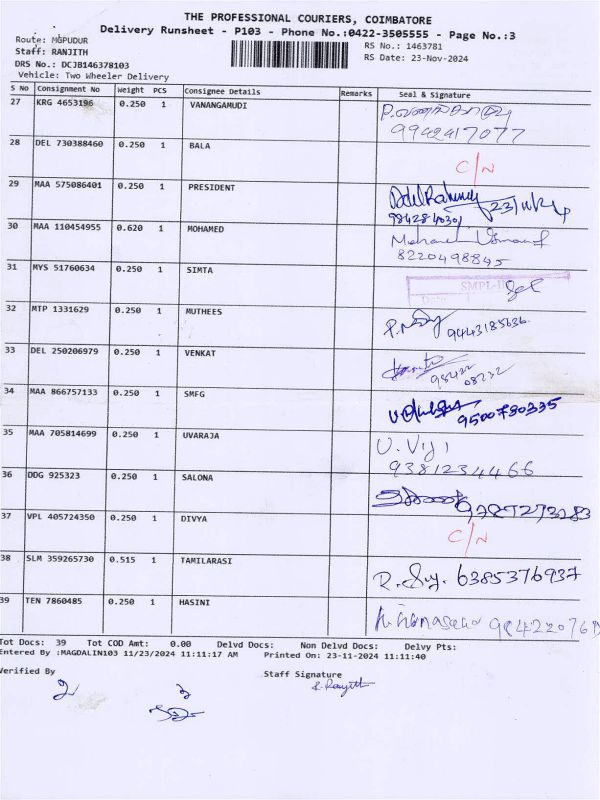 THE PROFESSIONAL COURIERS, COIMBATORE
Delivery Runsheet - P103 - Phone No.:0422-3505555 - Page No.:3
Route: MGPUDUR RS No.: 1463781
Staff: RANJITH RS Date: 23-Nov-2024
DRS No.: DCJB146378103
Vehicle: Two Wheeler Delivery
S No Consignment No Weight PCS Consignee Details Remarks Seal & Signature
27 KRG 4653196 0.250 1 VANANGAMUDI
9942417077
28 DEL 730388460 0.250 1 BALA C/N
29 MAA 575086401 0.250 1 PRESIDENT 23/11/24
9842840301
30 MAA 110454955 0.620 1 MOHAMED
8220498845
31 MYS 51760634 0.250 1 SIMTA
32 MTP 1331629 0.250 1 MUTHEES 9443185636
33 DEL 250206979 0.250 1 VENKAT
98422
08232
34 MAA 866757133 0.250 1 SMFG 9500790335
35 MAA 705814699 0.250 1 UVARAJA U. Viji
9381234466
36 DDG 925323 0.250 1 SALONA
37 VPL 405724350 0.250 1 DIVYA C/N
38 SLM 359265730 0.515 1 TAMILARASI 6385376937
39 TEN 7860485 0.250 1 HASINI
Tot Docs: 39 Tot COD Amt: 0.00 Delvd Docs: Non Delvd Docs: Delvy Pts:
Entered By :MAGDALIN103 11/23/2024 11:11:17 AM Printed On: 23-11-2024 11:11:40
Verified By Staff Signature